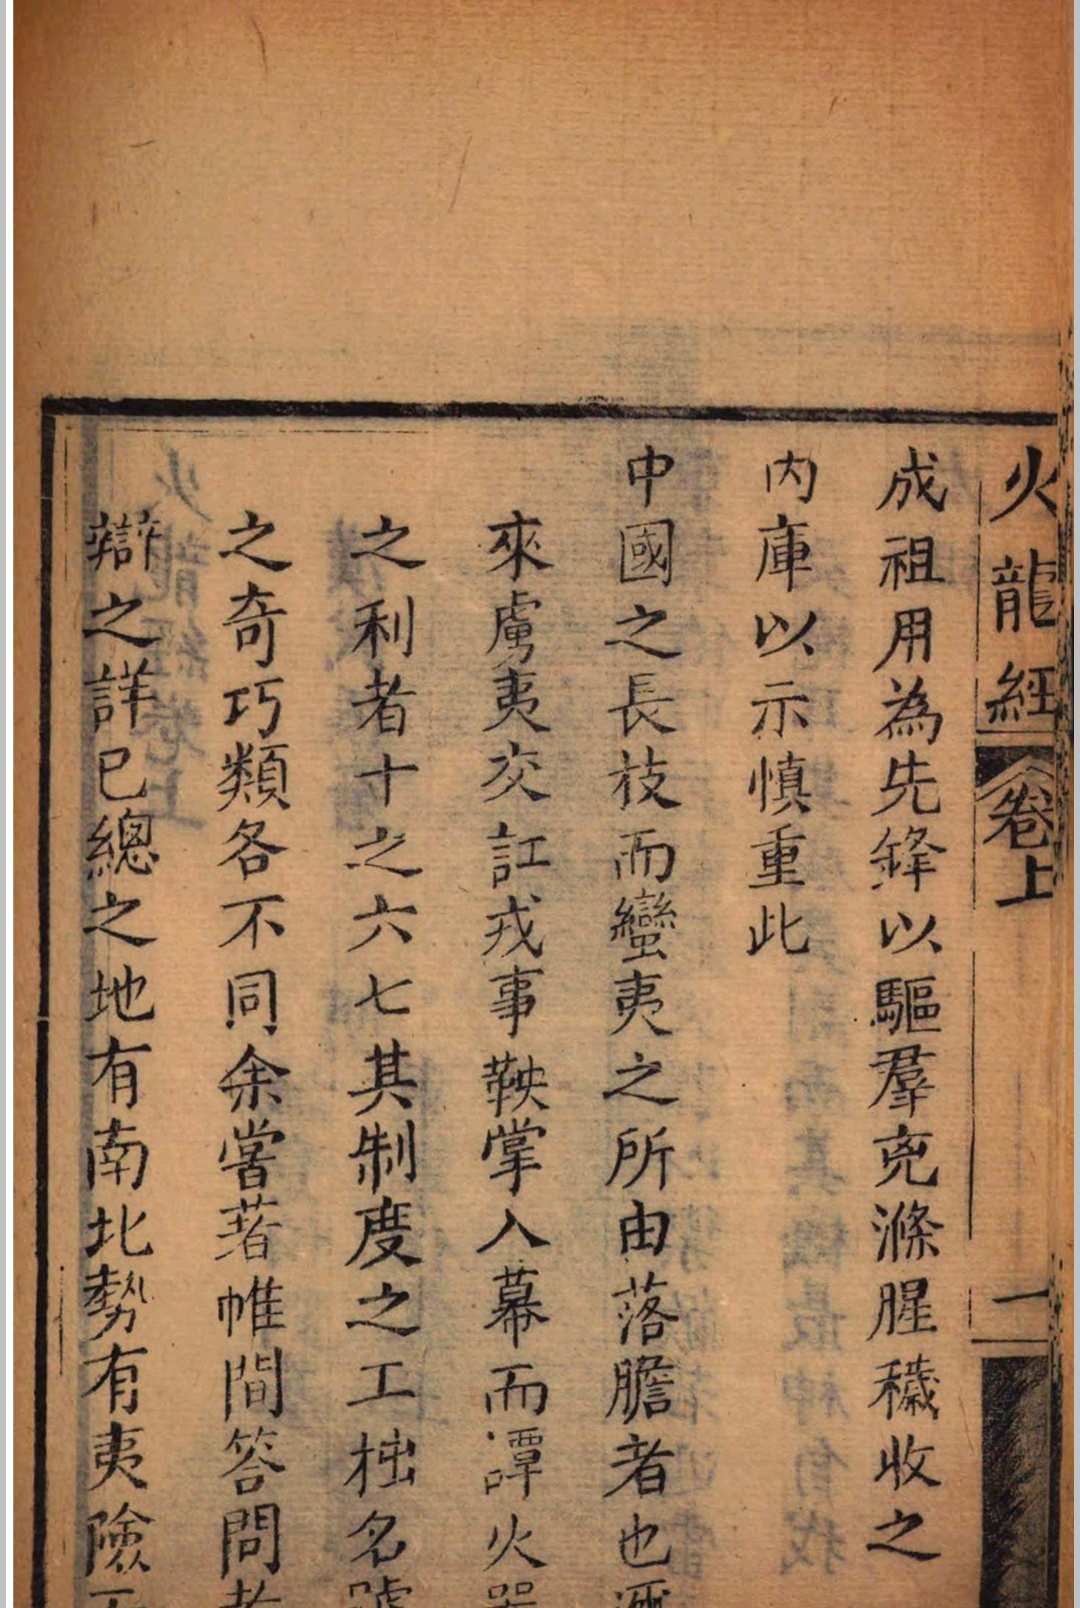 火龍經
卷上
一
成祖用為先鋒以驅羣兇滌腥穢收之
内庫以示慎重此
中國之長技而蠻夷之所由落膽者也邇
來虜夷交訌戎事鞅掌入幕而譚火器
之利者十之六七其制度之工拙名號
之奇巧類各不同余嘗著帷間答問者
辯之詳已總之地有南北勢有夷險